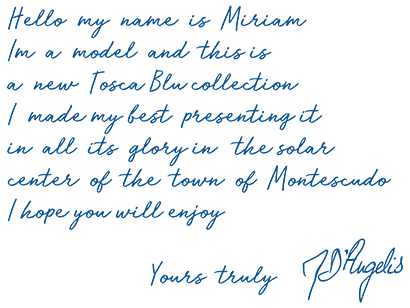 Hello my name is Miriam
Im a model and this is
a new Tosca Blu collection
I made my best presenting it
in all its glory in the solar
center of the town of Montescudo
I hope you will enjoy
Yours truly
D'Angelis